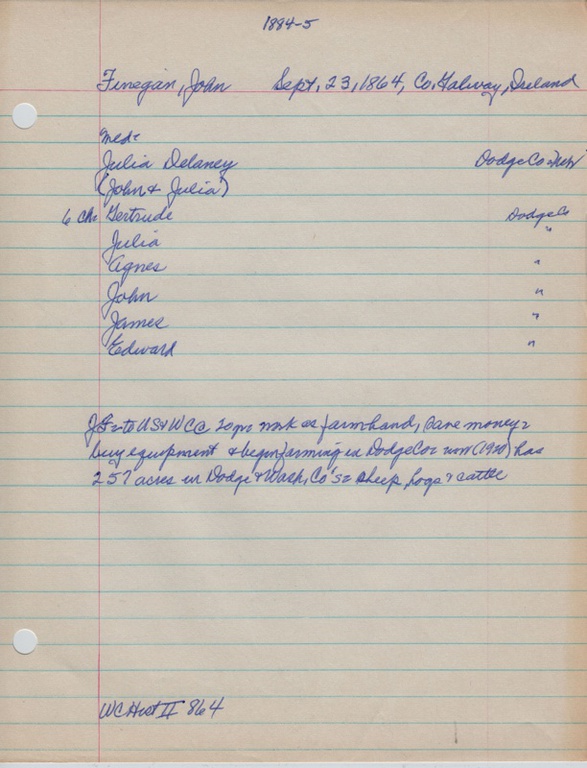 1884-5
Finegan, John Sept. 23, 1864, Co. Galway, Ireland
Med:
Julia Delaney Dodge Co Neb
(John & Julia)
6 Ch: Gertrude Dodge Co
Julia "
Agnes "
John "
James "
Edward "
JF = to US & WCC 20 yrs work as farmhand, save money =
buy equipment & begin farming in Dodge Co = now (1920) has
257 acres in Dodge & Wash, Co's = sheep, hogs & cattle
WC Hist II 864